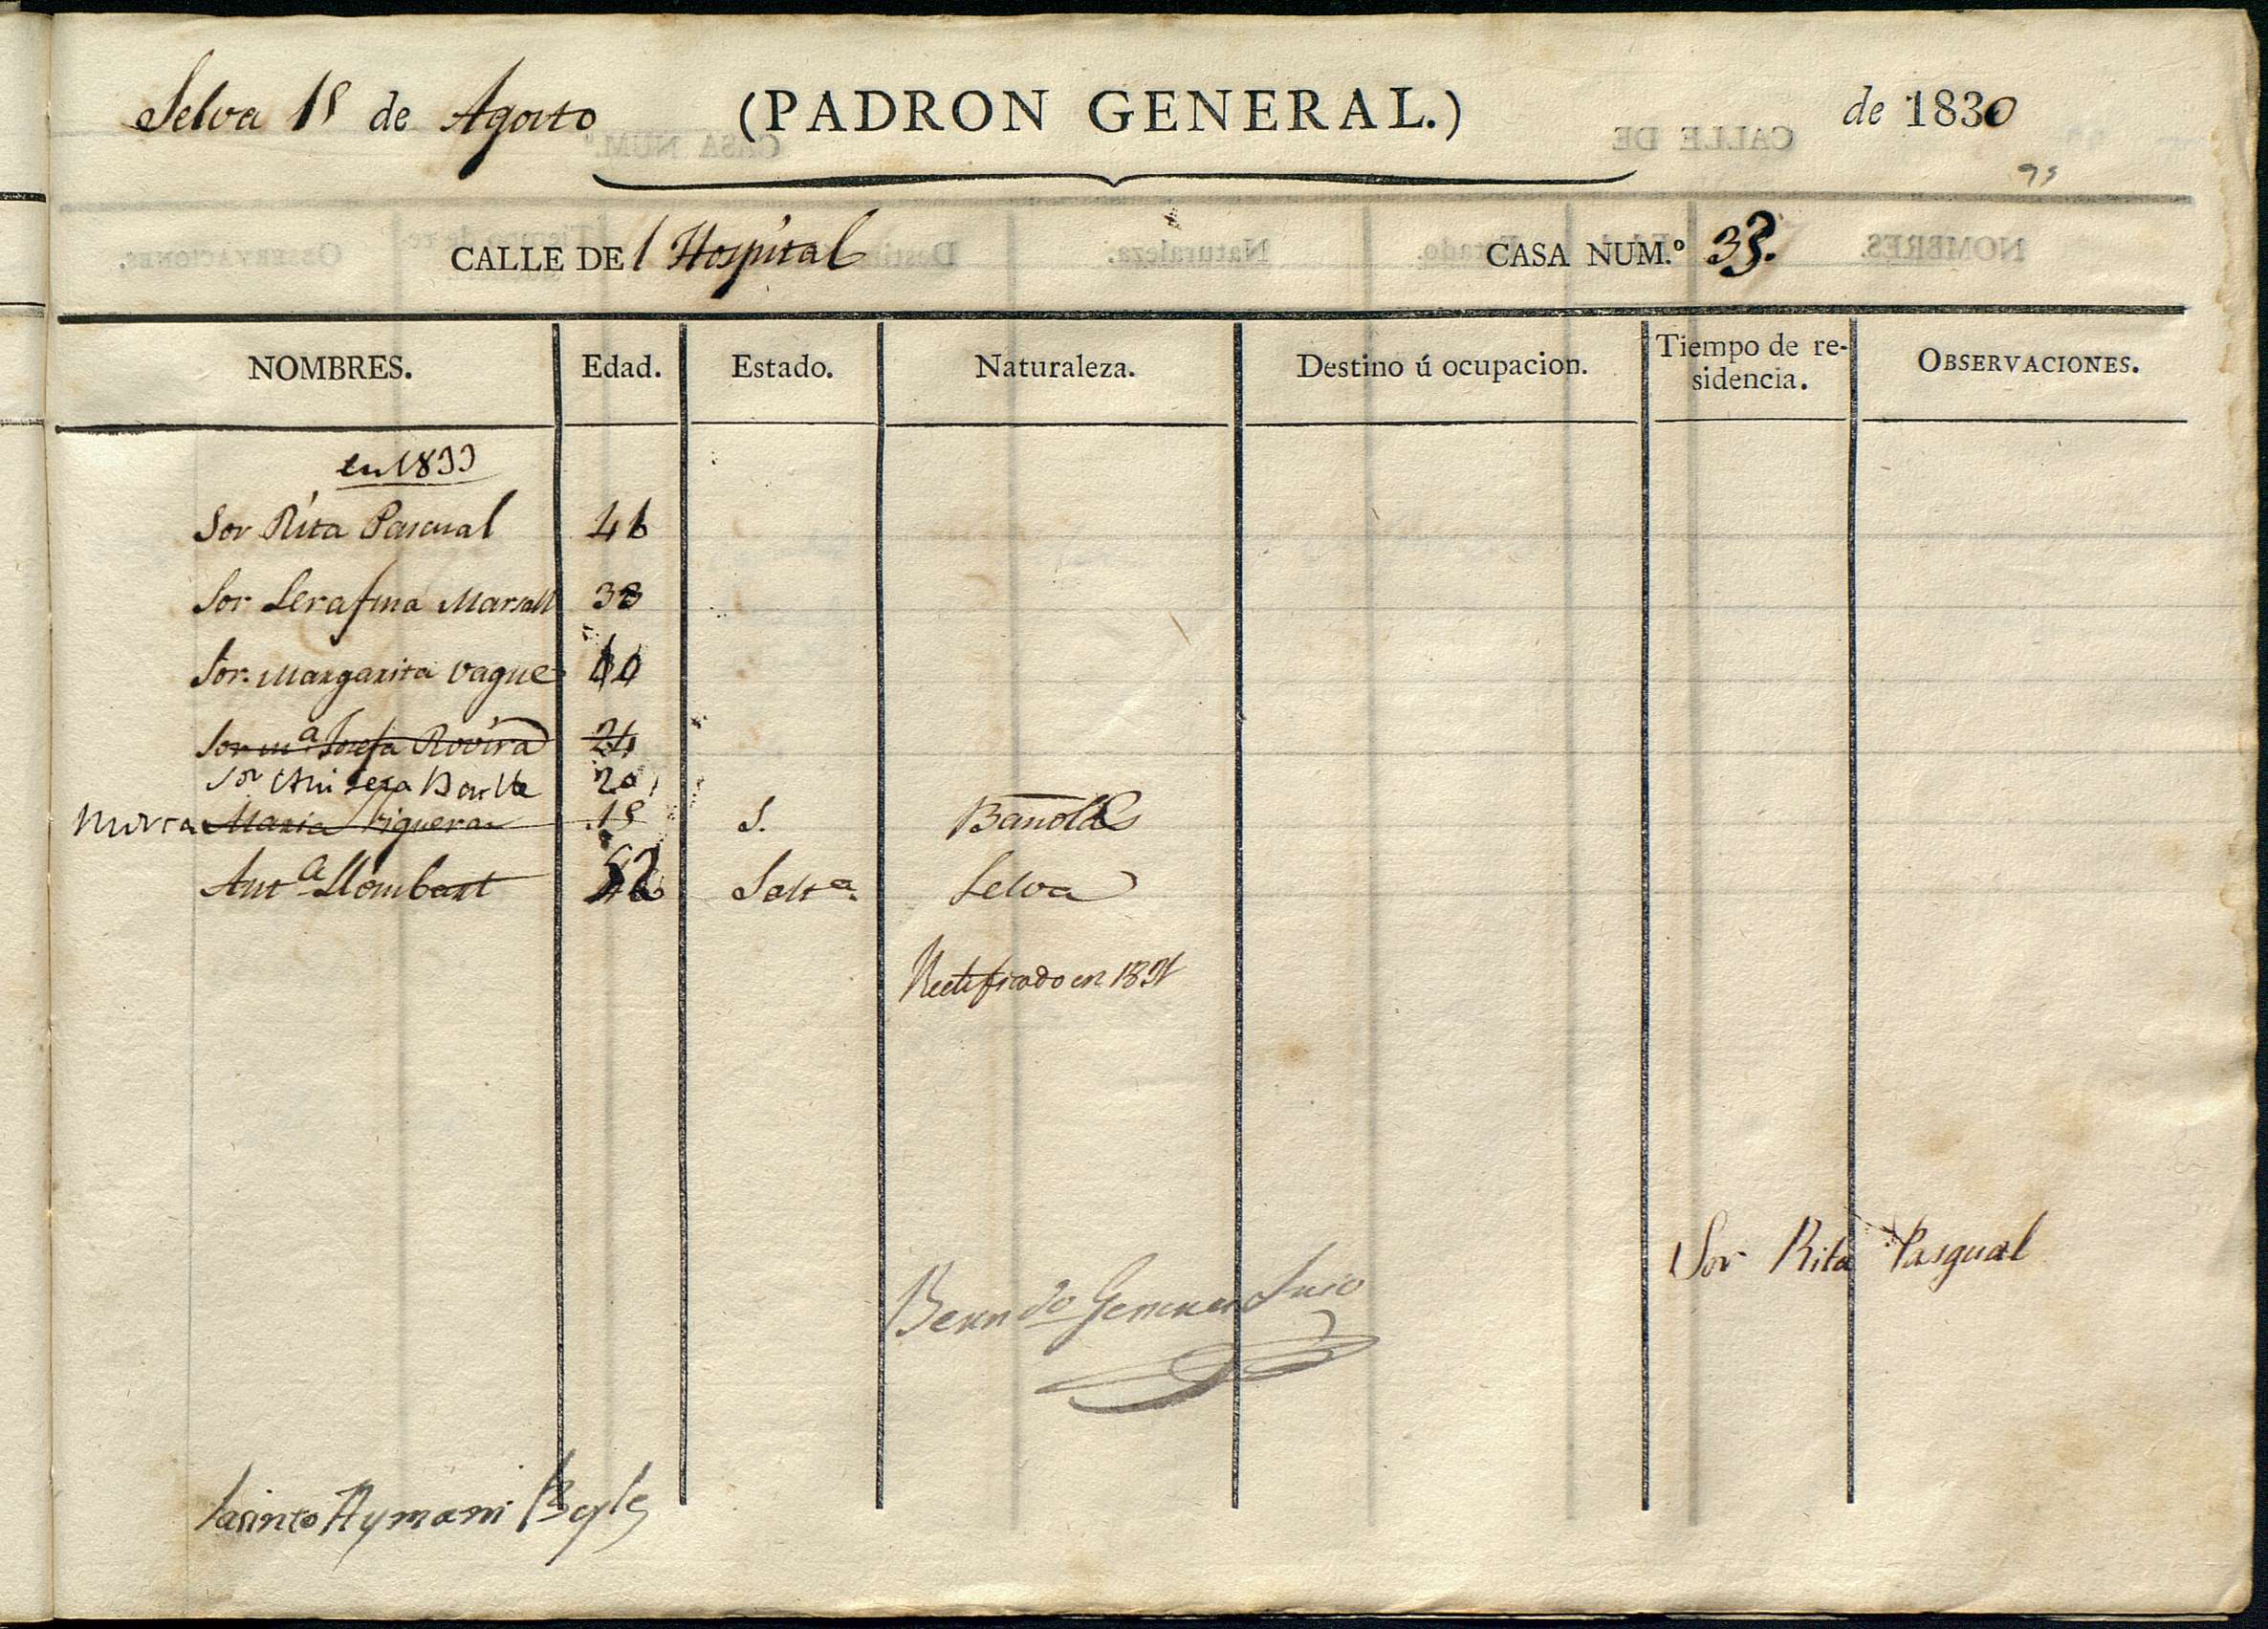 Selva 15 de Agosto (PADRON GENERAL.) de 1830
95
CALLE DE l Hospital CASA NUM.º 33.
NOMBRES. Edad. Estado. Naturaleza. Destino ú ocupacion. Tiempo de re-sidencia. OBSERVACIONES.
en 1833
Sor Rita Pascual 46
Sor Serafina Marsall 38
Sor Margarita Vague 60
Sor M.ª Josefa Rovira 24
Sor 20
Maria Figueras 15 S. Bañolas
Ant.ª Llombart 52 Solt.ª Selva
Rectificado en 1831
Sor Rita Pasgual
Bern.do
Jasinto Aymami Bayle